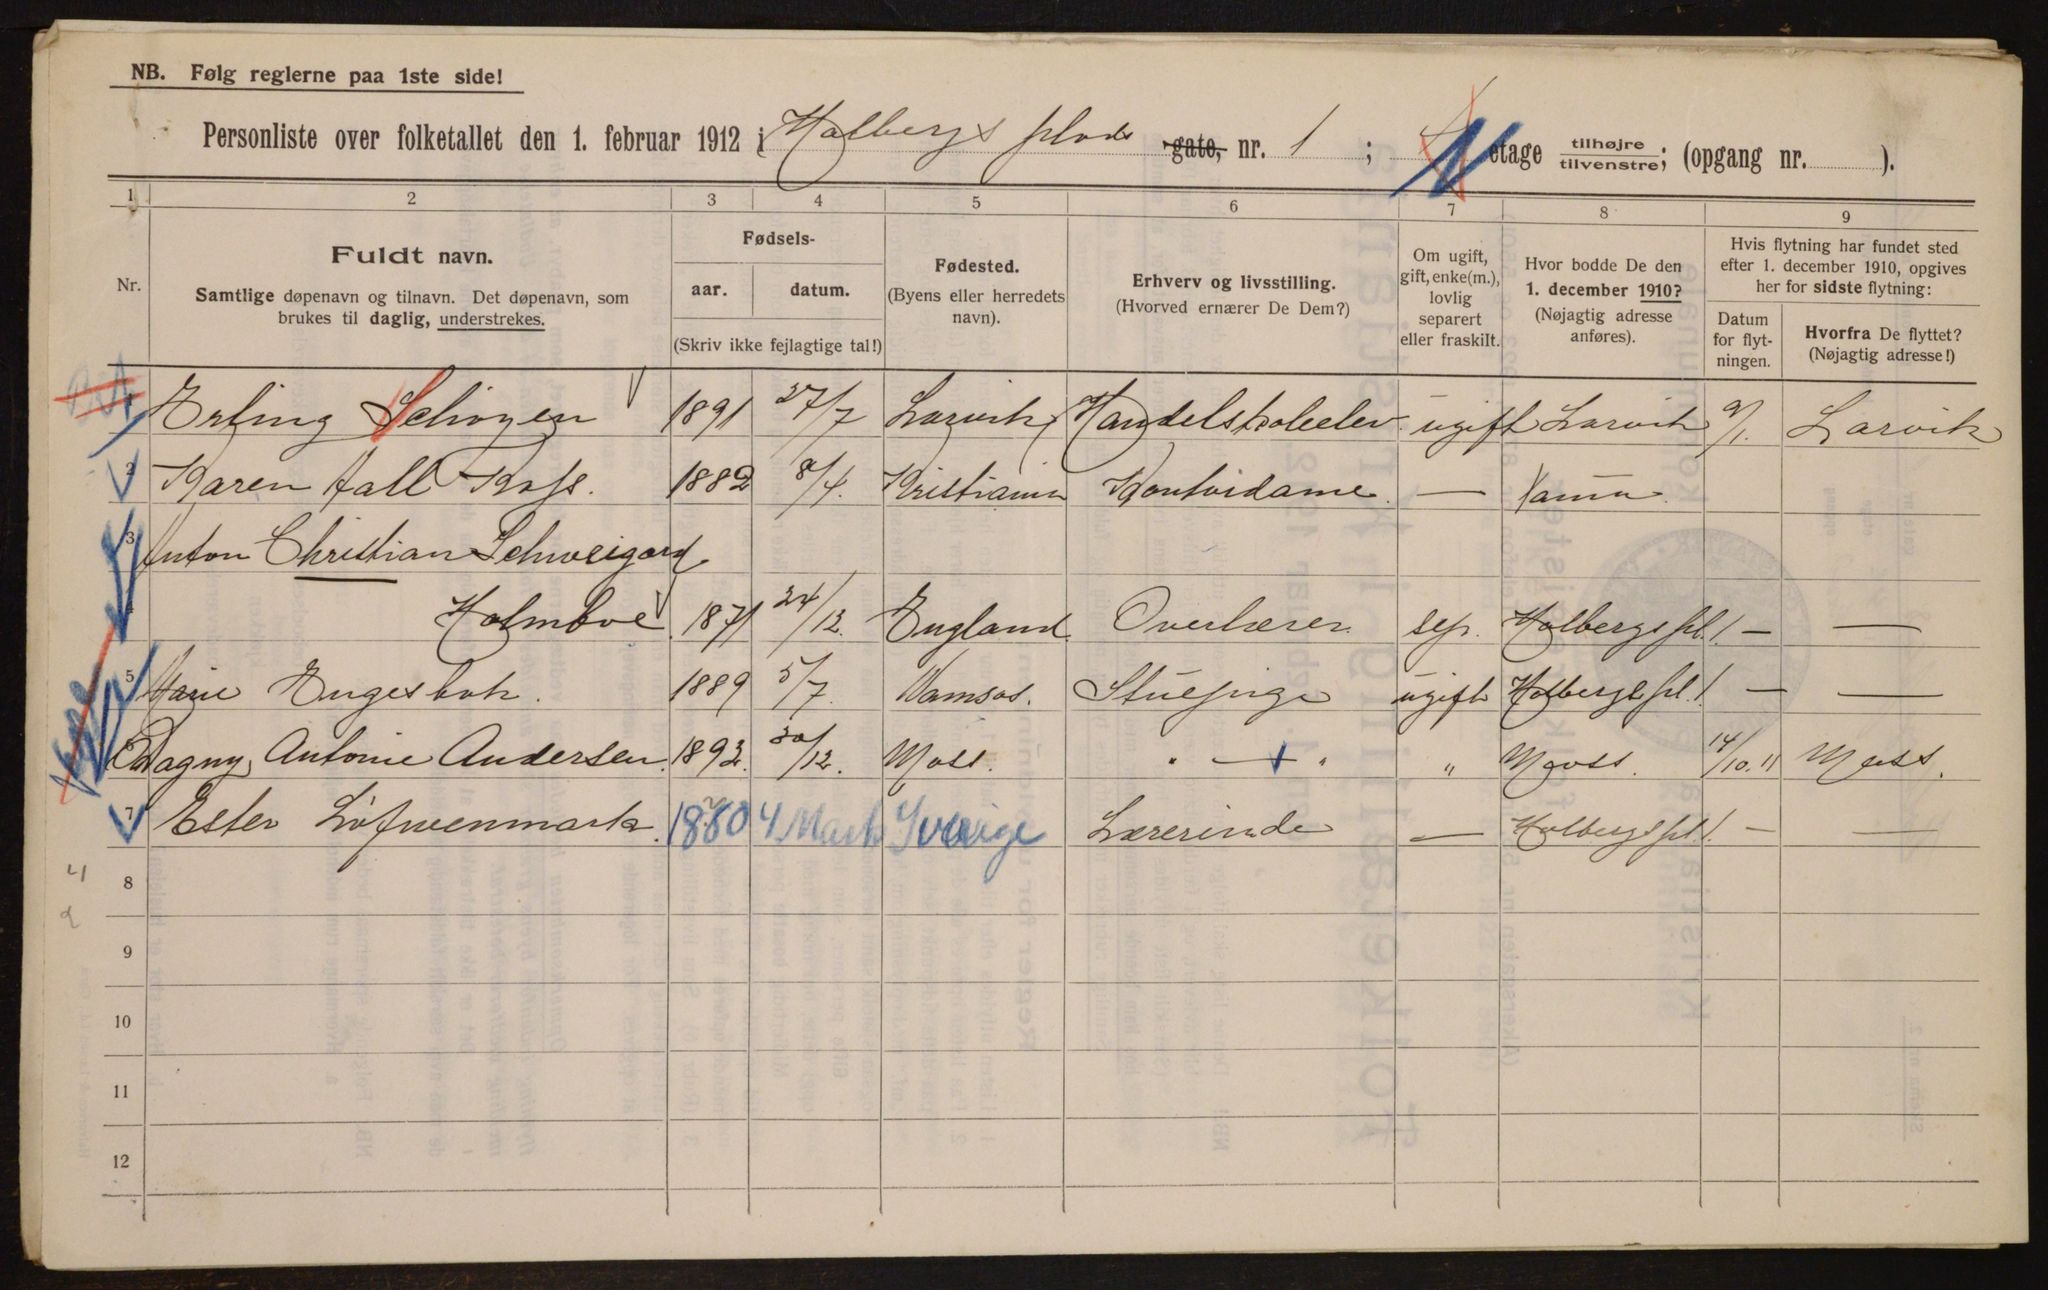 NB. Følg reglerne paa 1ste side!
Personliste over folketallet den 1. februar 1912 i Holbergs plads gate, nr. 1 ; etage tilhøjre tilvenstre; (opgang nr. ).
1 2 3 4 5 6 7 8 9
Nr.
Fuldt navn.
Samtlige døpenavn og tilnavn. Det døpenavn, som
brukes til daglig, understrekes.
Fødsels-
aar. datum.
(Skriv ikke fejlagtige tal!)
Fødested.
(Byens eller herredets
navn).
Erhverv og livsstilling.
(Hvorved ernærer De Dem?)
Om ugift,
gift, enke(m.),
lovlig
separert
eller fraskilt.
Hvor bodde De den
1. december 1910?
(Nøjagtig adresse
anføres).
Hvis flytning har fundet sted
efter 1. december 1910, opgives
her for sidste flytning:
Datum
for flyt-
ningen.
Hvorfra De flyttet?
(Nøjagtig adresse!)
Erling 1891 27/7 Larvik Handelsskoleelev ugift Larvik 9/1. Larvik
2 Karen Hall 1882 8/4. Kristiania Kontordame. —
3 Anton Christian Schweigard
4 Holmboe 1871 24/12. England. Overlærer. sep. Holbergs pl. 1 — —
5 Marie Engesbak. 1889 5/7. Namsos. Stuepige ugift Holbergs pl. 1. — —
Dagny Antonie Andersen. 1893. 30/12. Moss. " — " " Moss. 14/10.11 Moss.
7 Ester Löfwenmark. 1880 4 Marts Sverige Lærerinde — Holbergs pl. 1. — —
8
9
10
11
12